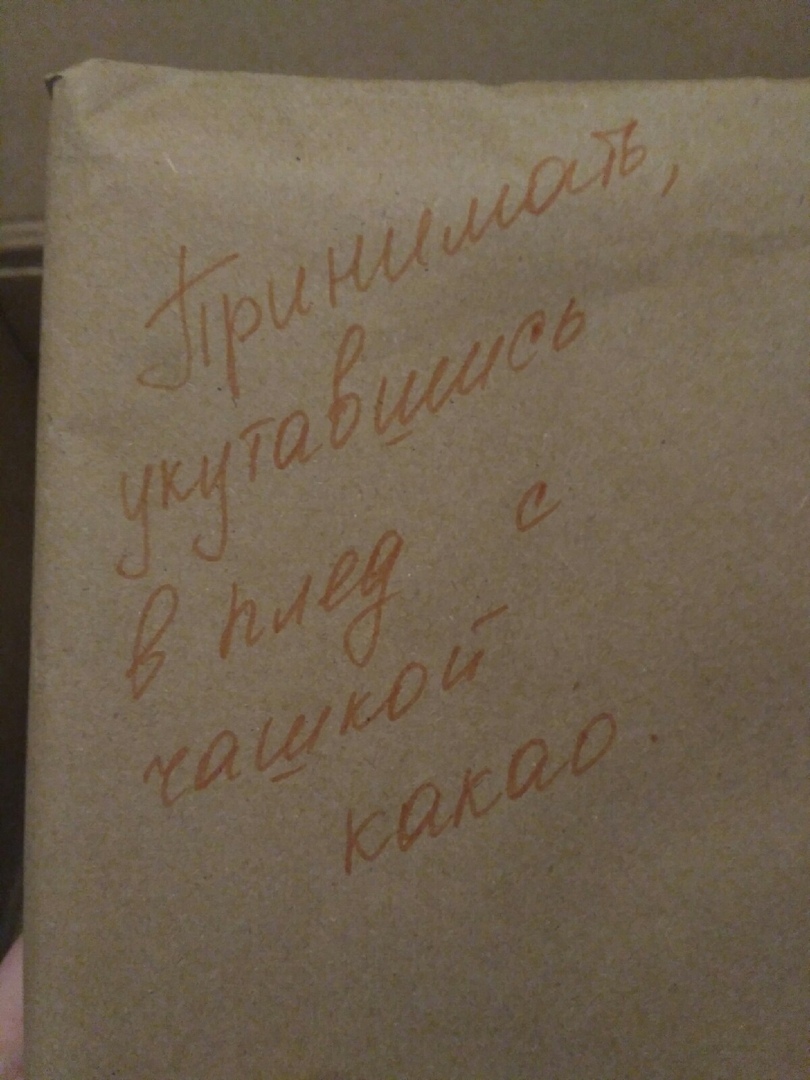 Принимать,
укутавшись
в плед с
чашкой
какао.